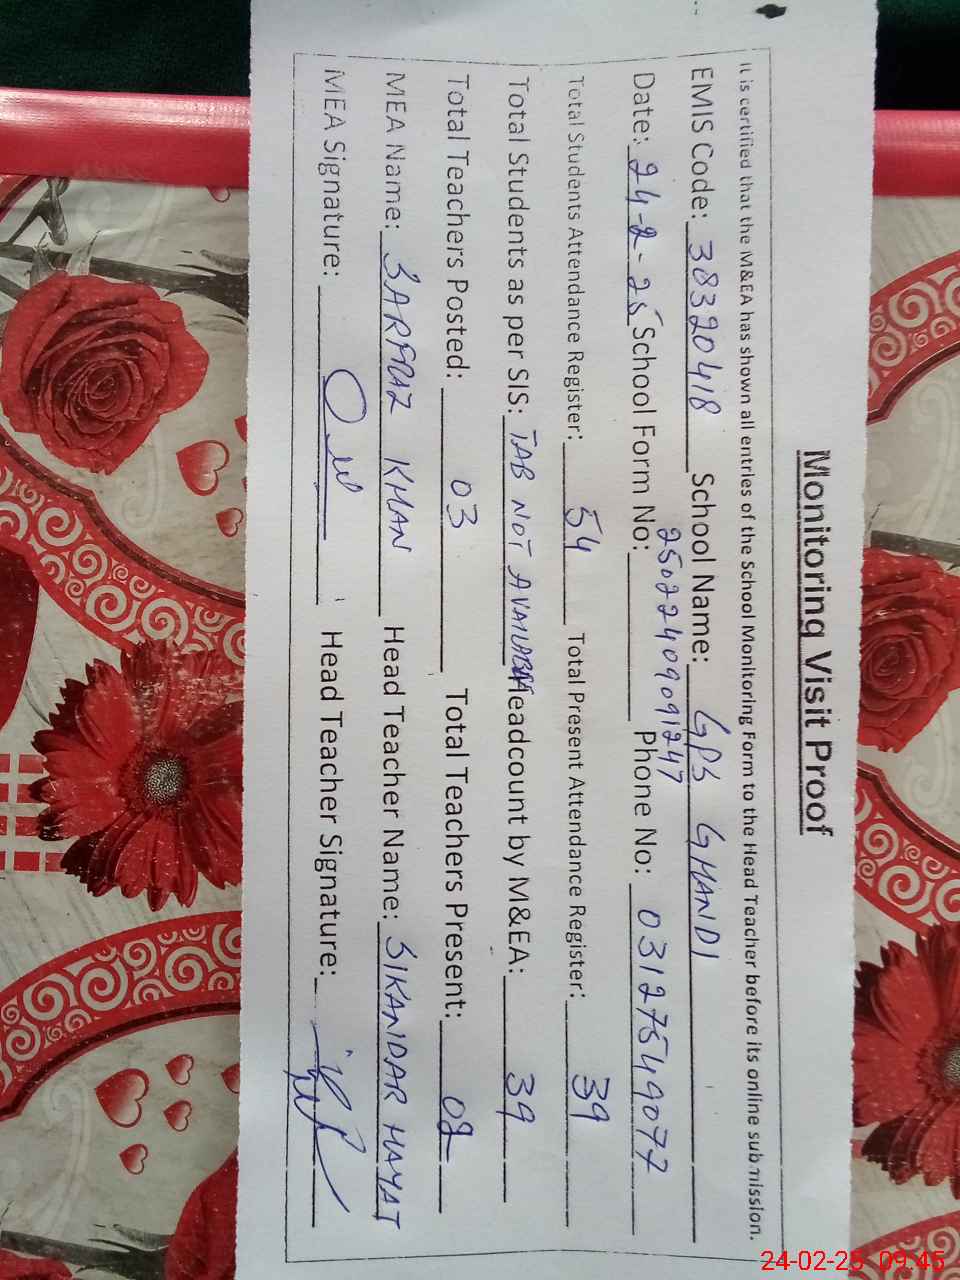 Monitoring Visit Proof
It is certified that the M&EA has shown all entries of the School Monitoring Form to the Head Teacher before its online submission.
EMIS Code: 38320418 School Name: GPS GHANDI
Date: 24-2-25 School Form No: 25022409091247 Phone No: 03127549077
Total Students Attendance Register: 54 Total Present Attendance Register: 39
Total Students as per SIS: TAB NOT AVAILABLE Headcount by M&EA: 39
Total Teachers Posted: 03 Total Teachers Present: 02
MEA Name: SARFRAZ KHAN Head Teacher Name: SIKANDAR HAYAT
MEA Signature: Head Teacher Signature:
24-02-25 09:45